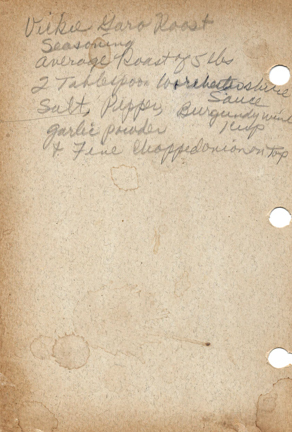 Vickie Garo Roost
Seasoning
average Roast of 5 lbs
2 Tablespoon Worshestershire
Sauce
Salt, Pepper, Burgundy wine
1 cup
garlic powder
& Fine Chopped onion on top